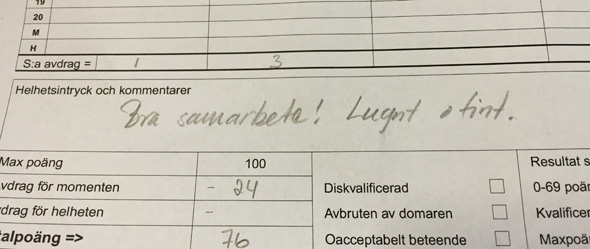 19
20
M
H
S:a avdrag = 1 3
Helhetsintryck och kommentarer
Bra samarbete! Lugnt o fint.
Max poäng 100 Resultat s
vdrag för momenten - 24 Diskvalificerad 0-69 poän
vdrag för helheten - Avbruten av domaren Kvalificer
talpoäng => 76 Oacceptabelt beteende Maxpoä